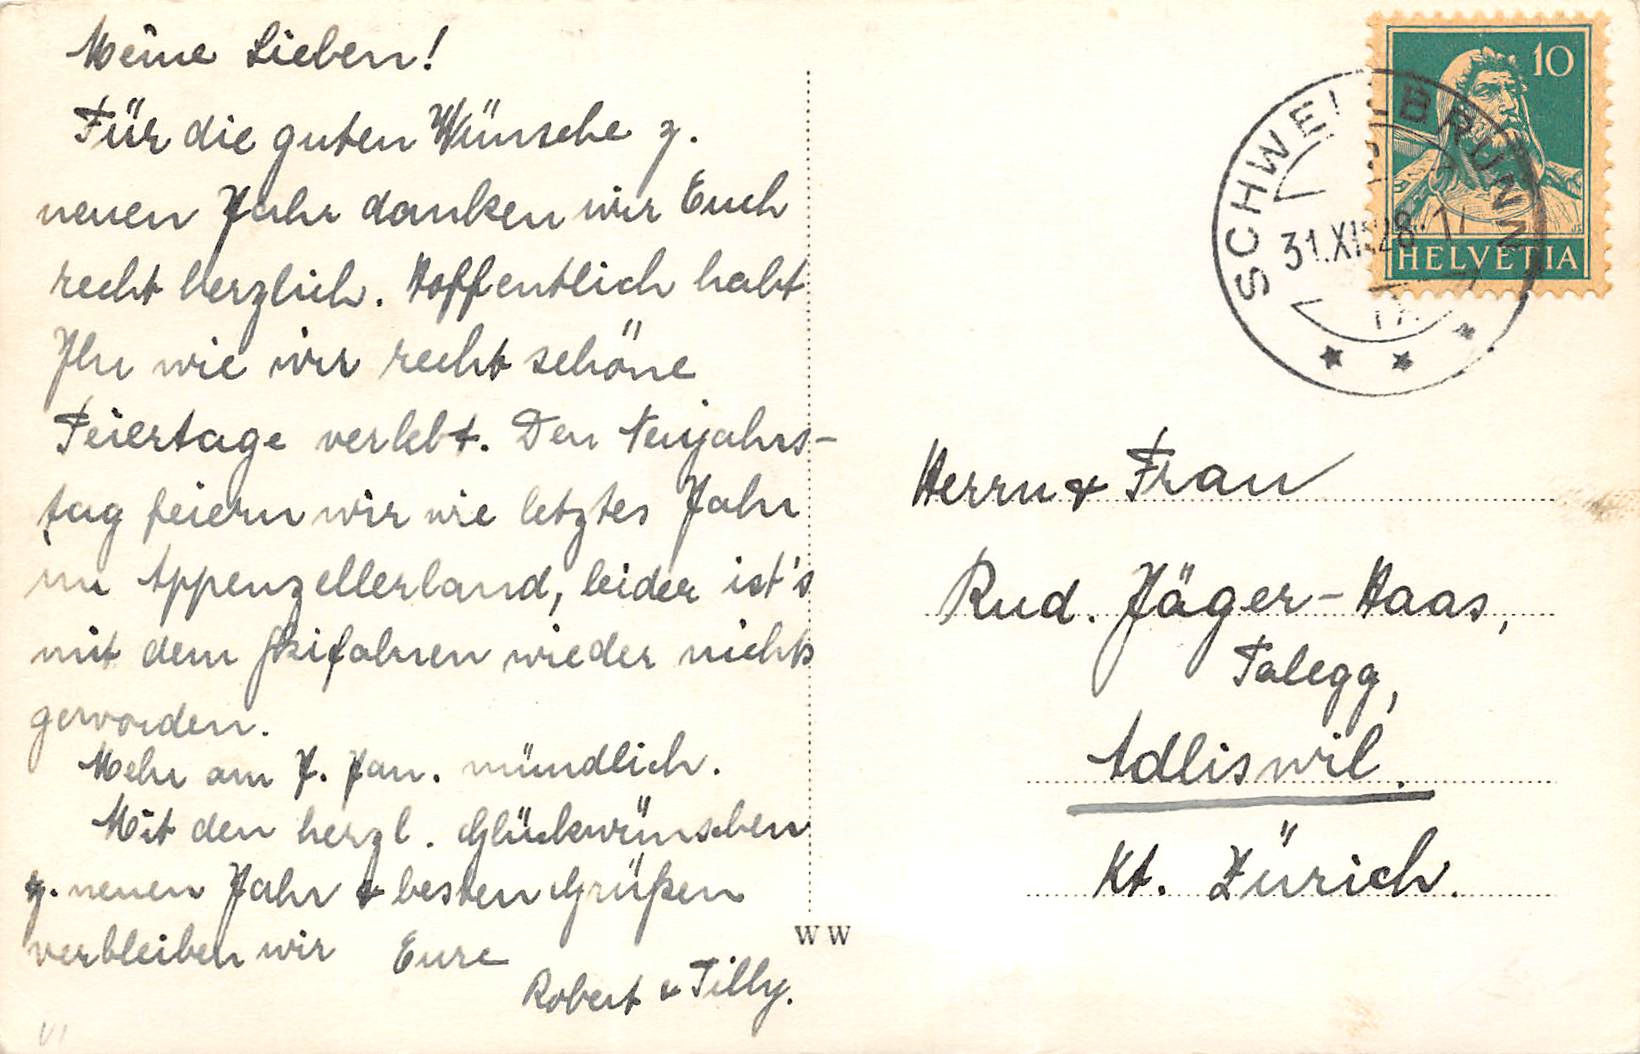 Meine Lieben!
Für die guten Wünsche z.
neuen Jahr danken wir Euch
recht herzlich. Hoffentlich habt
Ihr wie wir recht schöne
Feiertage verlebt. Den Neujahrs-
tag feiern wir wie letztes Jahr
im Appenzellerland, leider ist's
mit dem Skifahren wieder nichts
geworden.
Mehr am 7. Jan. mündlich.
Mit den herzl. Glückwünschen
z. neuen Jahr & besten Grüßen
verbleiben wir Eure
Robert & Tilly.
WW
10
HELVETIA
SCHWEL BRUNN
31.XII.28.17
Herrn & Frau
Rud. Jäger-Haas,
Talegg,
Adliswil.
Kt. Zürich.